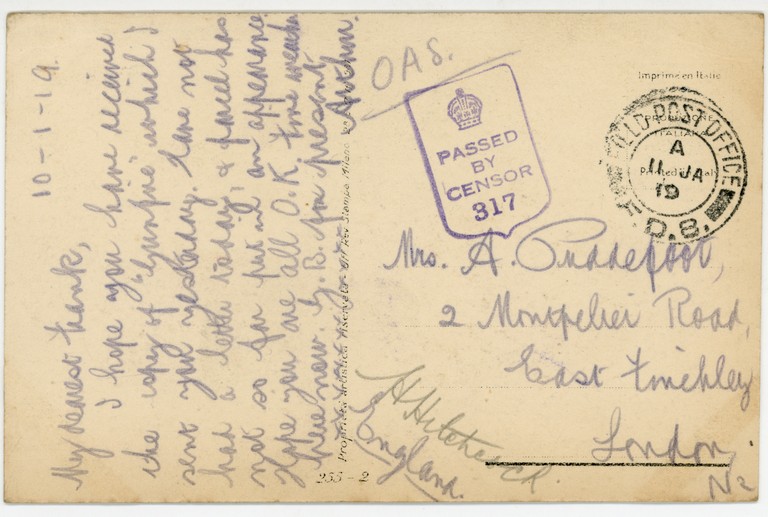 10-1-19.
My dearest Frank,
I hope you have received
the copy of "Gunfire" which I
sent you yesterday. Have not
had a letter today, & parcel has
not so far put in an appearance
Hope you are all O.K. Fine weather
here now. G.B. for present,
Arthur.
OAS.
PASSED
BY
CENSOR
317
Imprimé en Italie
ITALIA
FIELD POST OFFICE
A
11 JA
19
F.D.8.
Mrs. A. Puddefoot,
2 Montpelier Road,
East Finchley
London,
N2
England.
H Hitchcock.
Proprietà Artistica Riservata
255 - 2